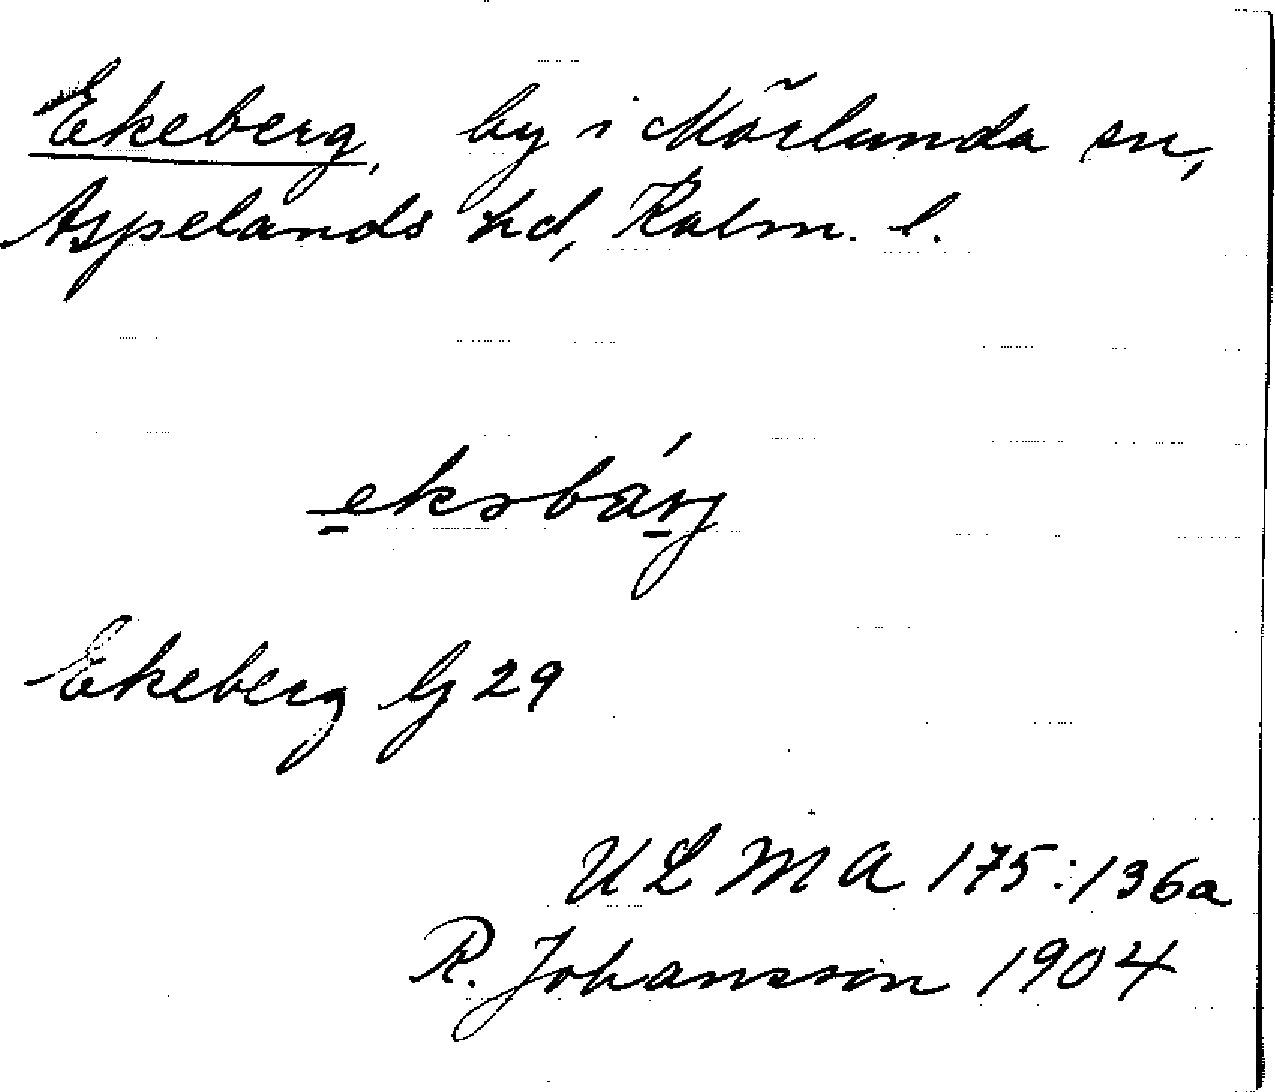 Ekeberg, by i Mörlunda sn,
Aspelands hd, Kalm. l.
ekəbárj
Ekeberg G 29
ULMA 175:136a
R. Johansson 1904